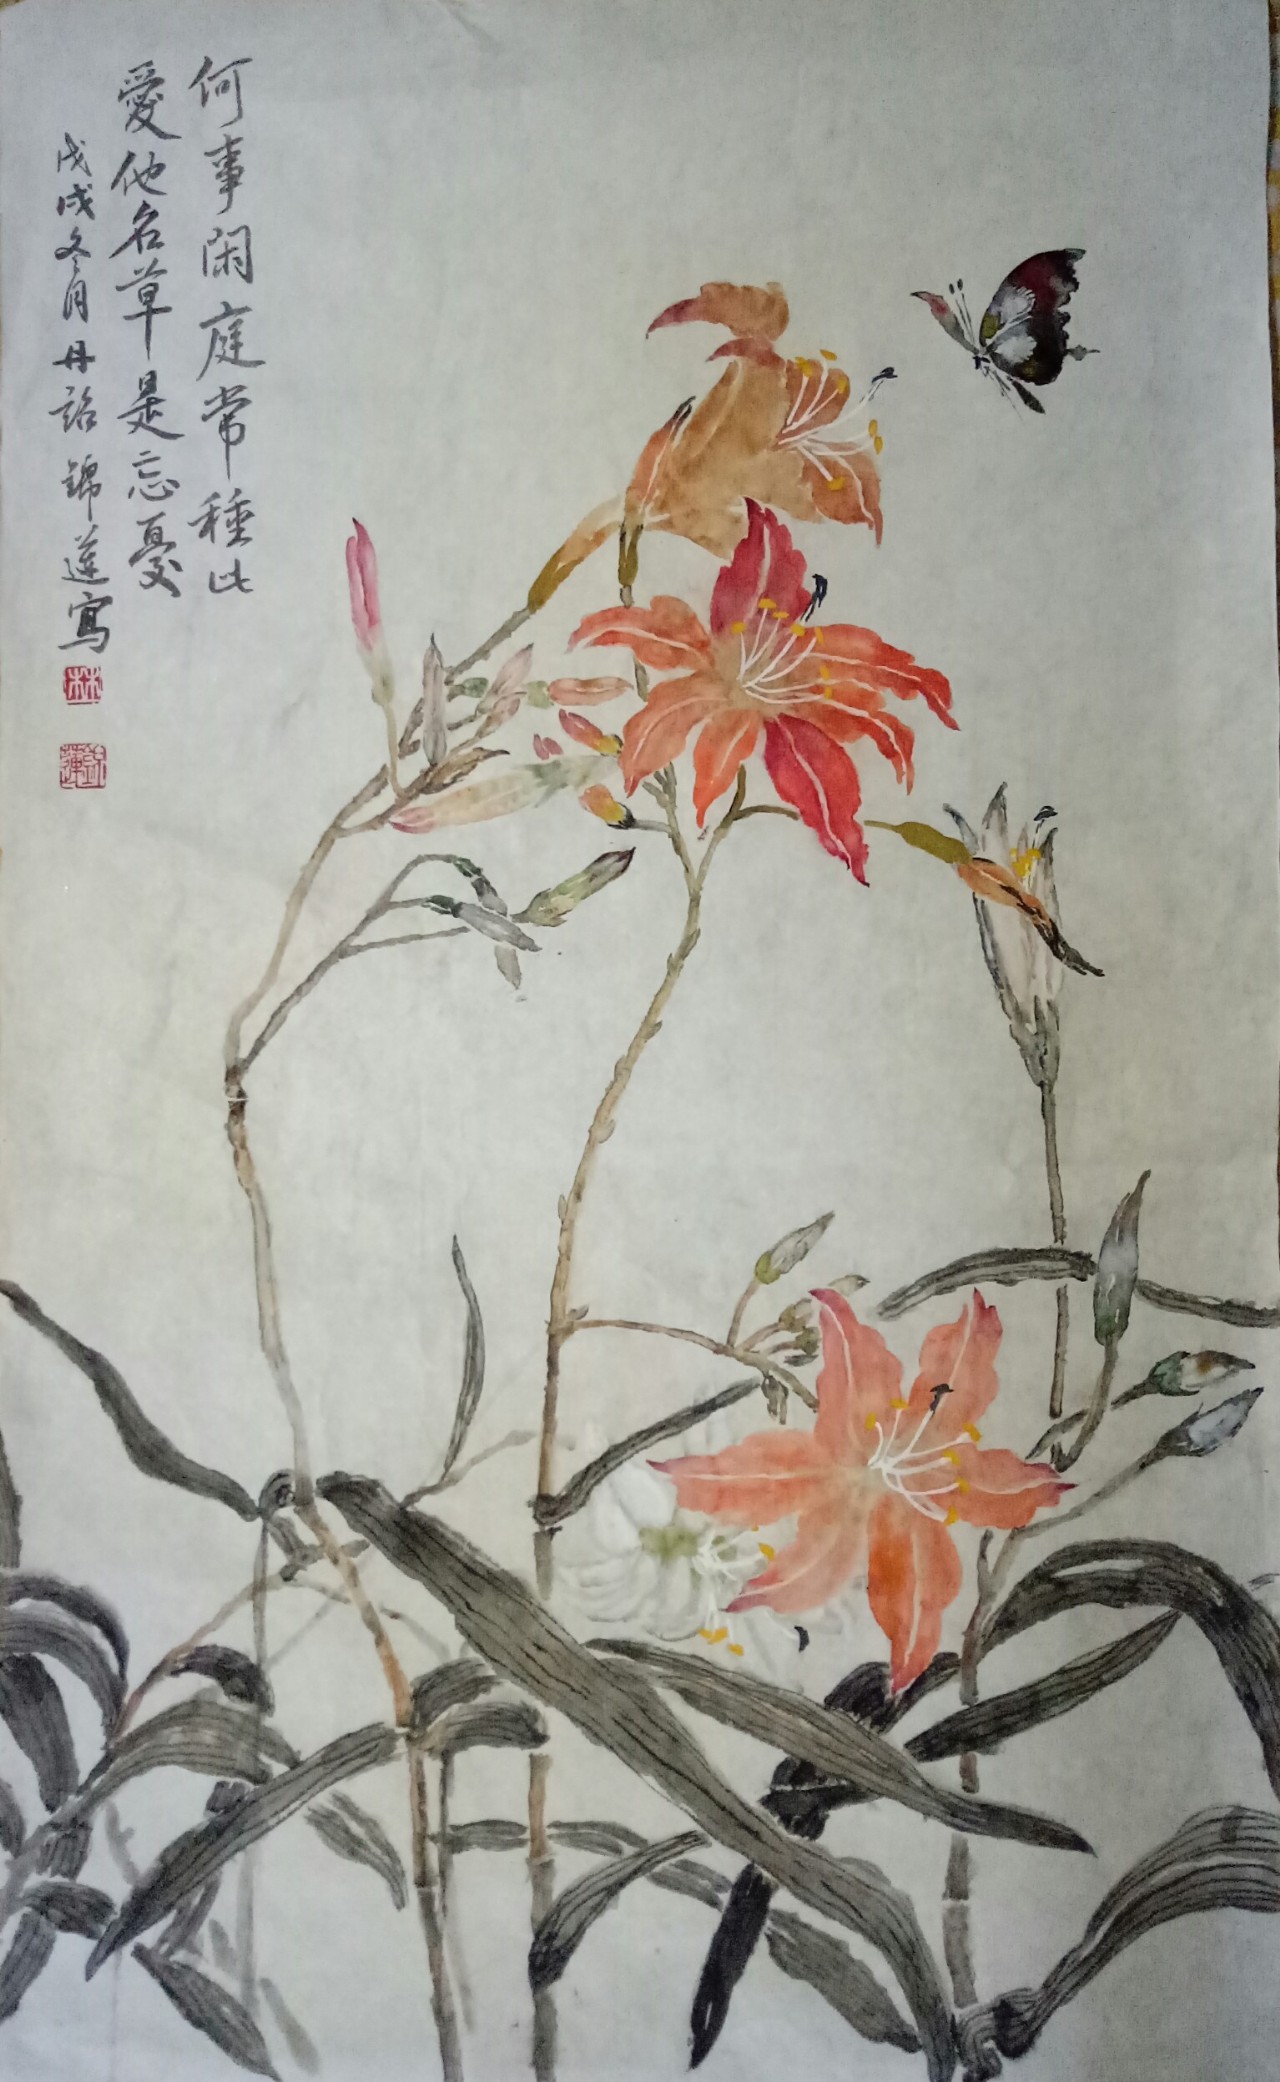 何事閑庭常種此
愛他名草是忘憂
戊戌冬月丹詔錦蓮寫
林
錦蓮